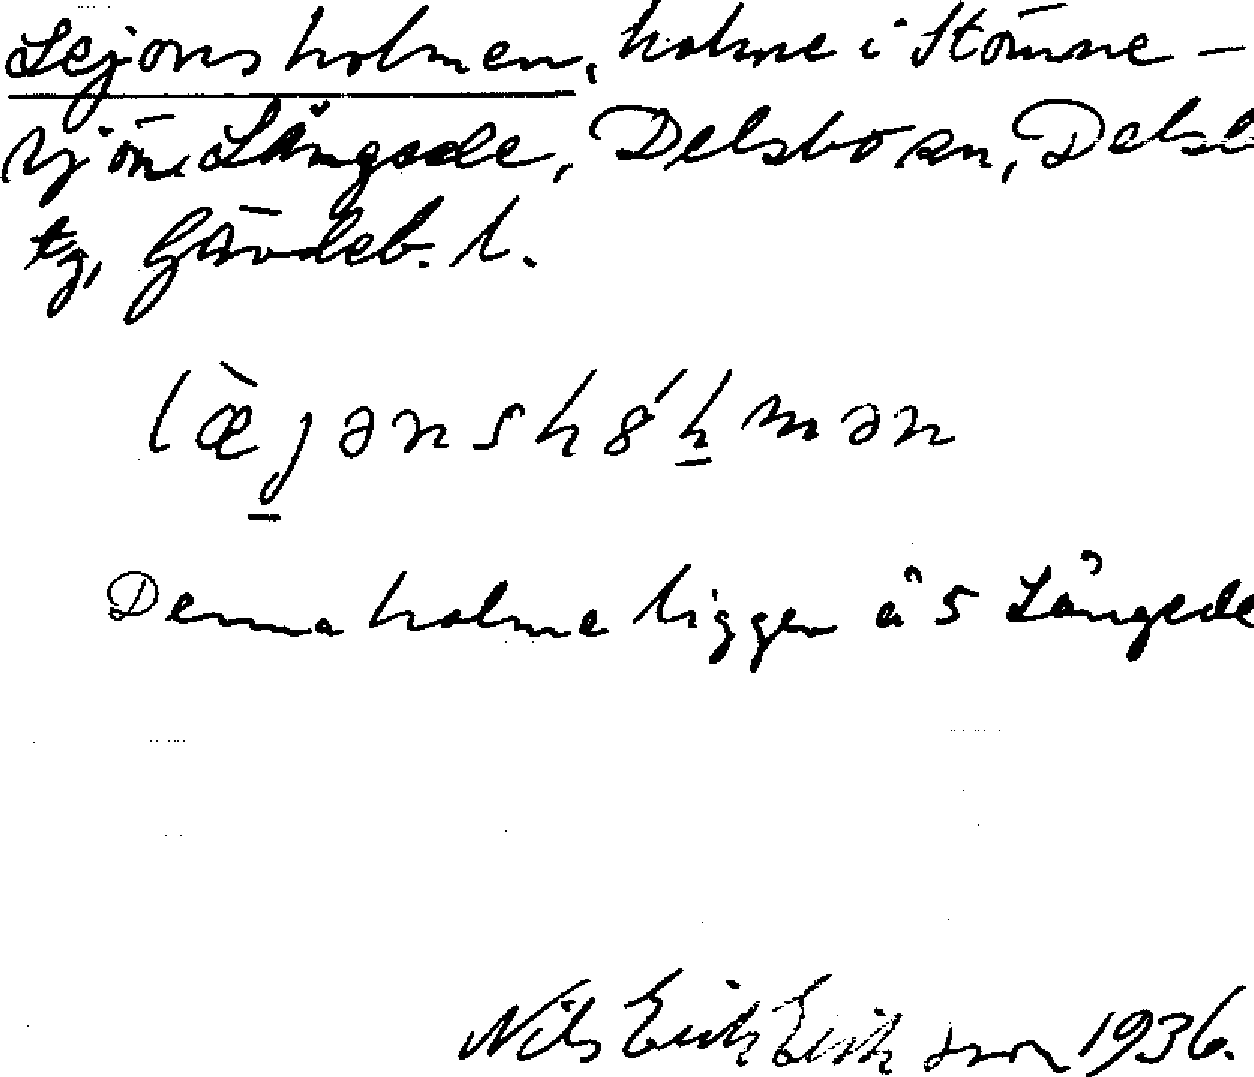 Lejonsholmen, holme i Stömne-
sjön, Långede, Delsbo sn, Delsb
tg, Gävleb. l.
læ̀jənshɞ́hmən
Denna holme ligger å 5 Långede
Nils Erik Eriksson 1936.